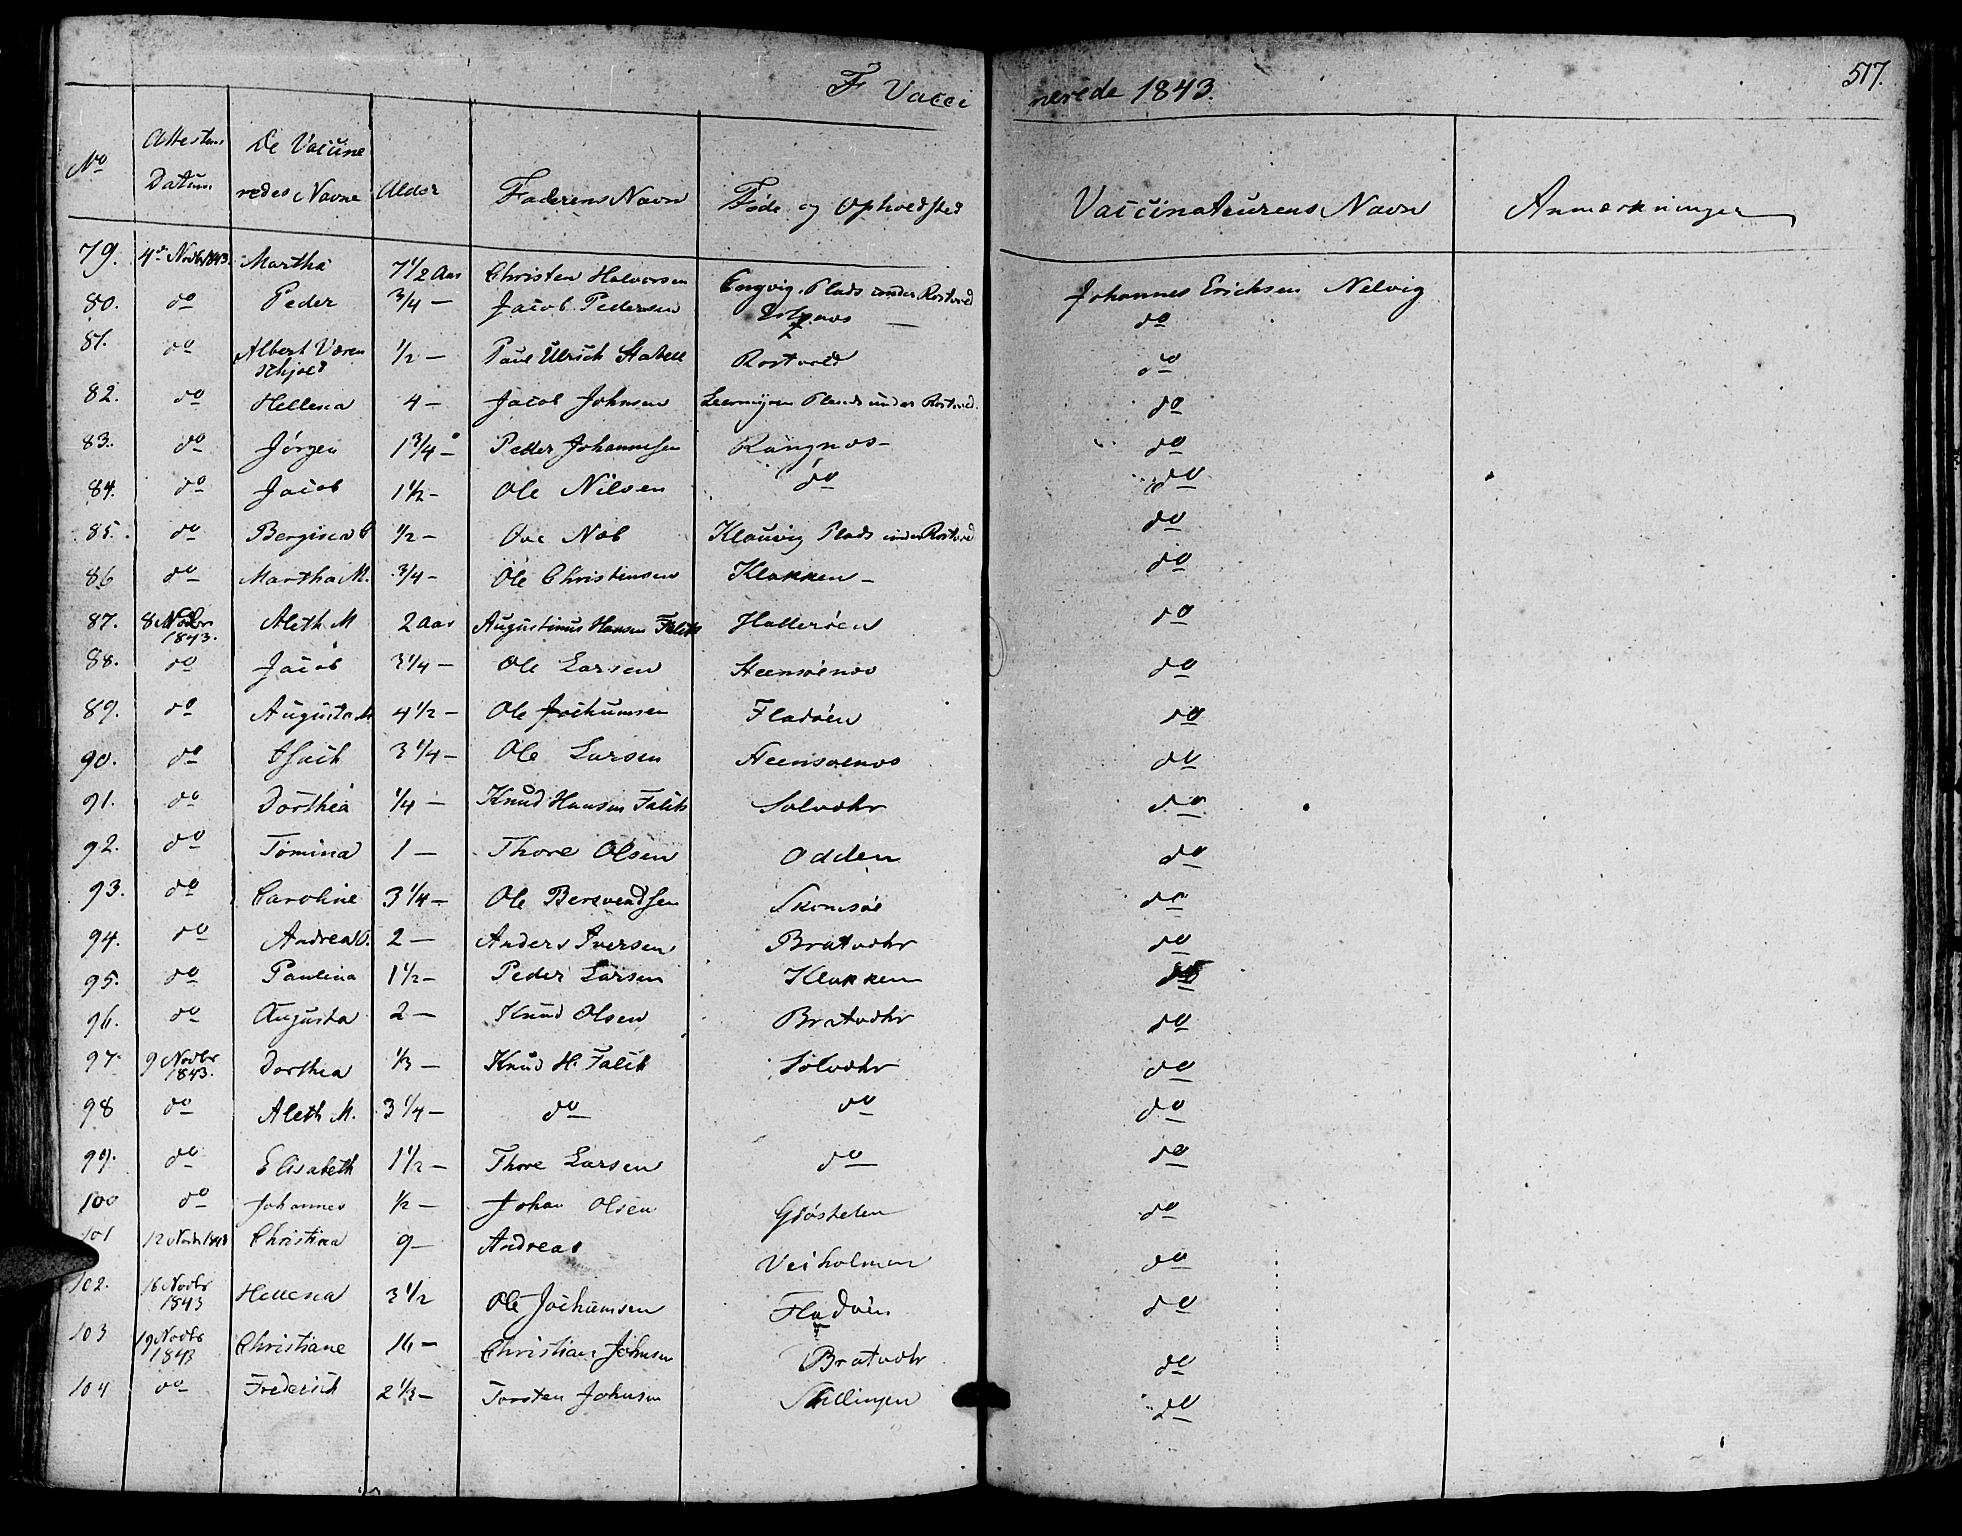 F Vaccinerede 1843.
517.
No Attestens Datum De Vaccineredes Navne Alder Faderens Navn Føde og Opholdsted Vaccinateurens Navn Anmærkninger
79. 4de Novbr 1843. Martha 7 1/2 Aar Christen Halvorsen Engvig Plads under Rostved Johannes Erichsen Nelvig
80. do Peder 3/4 — Jacob Pedersen — do
81. do Albert Værenschjold 1/2 — Paul Ulrich Stabell Rostved do
82. do Hellena 4 — Jacob Johnsen Leermyren Plads under Rostved. do
83. do Jørgen 1 3/4 — Peder Johannesen Rangnæs — do
84. do Jacob 1 1/2 — Ole Nilsen do do
85. do Bergina C 1/2 — Ove Næb Klauvig Plads under Rostved do
86 do Martha M. 3/4 — Ole Christensen Klakken — do
87. 8 Novbr 1843. Aleth M 2 Aar Augustinus Hansen Falch Hallerøen do
88. do Jacob 3 1/4 — Ole Larsen Steensøenæs do
89. do Augusta M 4 1/2 — Ole Jochumsen Fladøen do
90. do Isach 3 1/4 — Ole Larsen Steensøenæs do
91. do Dorthea 1/4 — Knud Hansen Falch Solvæhr do
92. do Tomina 1 — Thore Olsen Odden do
93. do Caroline 3 1/4 — Ole Bersvendsen Skomsøe do
94. do Andrea O. 2 — Anders Iversen Bratvæhr do
95. do Paulina 1 1/2 — Peder Larsen Klakken do
96. do Augusta 2 — Knud Olsen Bratvæhr do
97 9 Novbr 1843. Dorthea 1/3 — Knud H. Falch Solvæhr do
98 do Aleth M. 3 1/4 — do do do
99. do Elisabeth 1 1/2 — Thore Larsen do do
100 do Johannes 1/2 — Johan Olsen Gjøstelen do
101 12 Novbr 1843 Christina 9 — Andreas Veiholmen do
102. 16 Novbr 1843 Hellena 3 1/2 Ole Jochumsen Fladøen do
103 19 Novbr 1843 Christiane 16 — Christian Johnsen Bratvæhr do
104 do Frederich 2 1/3 — Torsten Johnsen Skillingen do